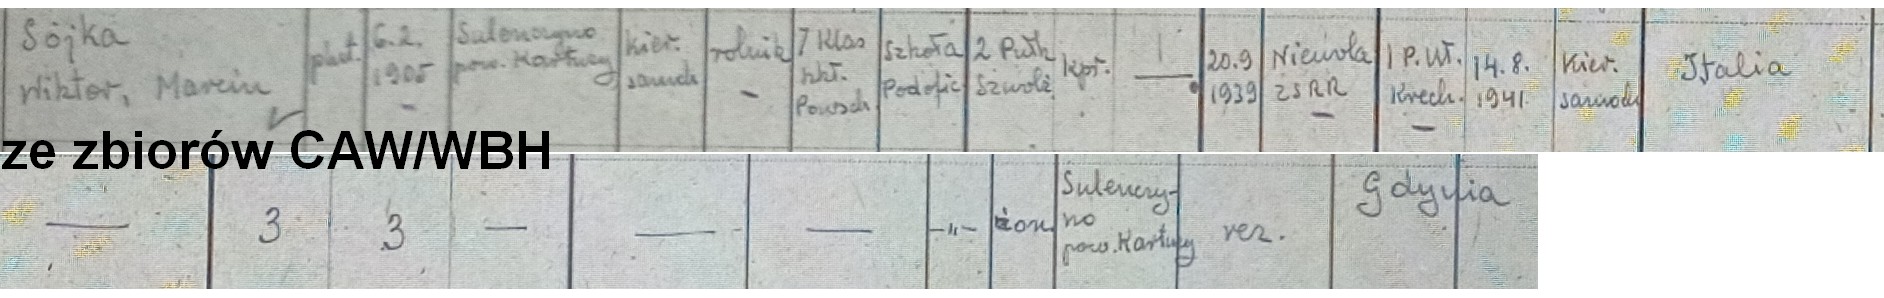 Sójka
Wiktor, Marcin
plut.
6.2.
1905
Sulenczyno
pow. Kartuzy
kier.
samoch
rolnik
7 klas
szkł.
Powsch
Szkoła
Podofic
2 Pułk
Szwolż
kpr.
20.9
1939
Niewola
ZSRR
1 P.Uł.
Krech.
14.8.
1941.
Kier.
samoch
Italia
ze zbiorów CAW/WBH
— 3 3 — — — -"- żon
Sulenczy-
no
pow. Kartuzy
rez.
Gdynia